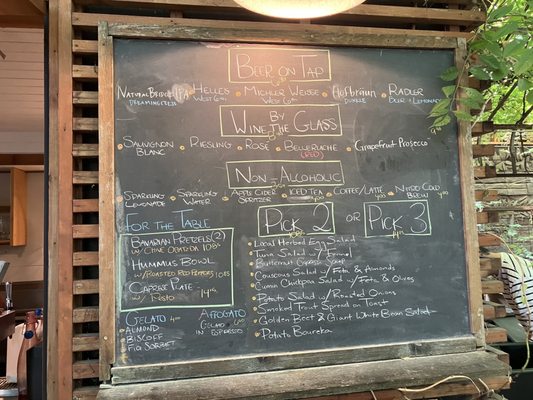 Beer on Tap
Natural Bridges IPA
Helles
Michler Weisse
Hofbräun
Radler
West 6th
West 6th
Dunkle
Beer & Lemonade
Wine by the Glass
Sauvignon Blanc
Riesling
Rosé
Belleruche (Red)
Grapefruit Prosecco
Non-Alcoholic
Sparkling Lemonade
Sparkling Water
Apple Cider Spritzer
Iced Tea
Coffee/Latte
Nitro Cold Brew
For the Table
Bavarian Pretzels (2)
w/ Chive 10.85
Hummus Bowl
w/ Roasted Red Peppers 10.85
Caprese Plate
w/ Pesto 14.95
Gelato
Almond
Biscoff
Fig Sorbet
Affogato
Gelato
in Espresso
Pick 2 or Pick 3
Local Herbed Egg Salad
Tuna Salad w/ Fennel
Butternut Soup
Couscous Salad w/ Feta & Almonds
Cumin Chickpea Salad w/ Feta & Olives
Potato Salad w/ Roasted Onions
Smoked Trout Spread on Toast
Golden Beet & Giant White Bean Salad
Potato Boureka